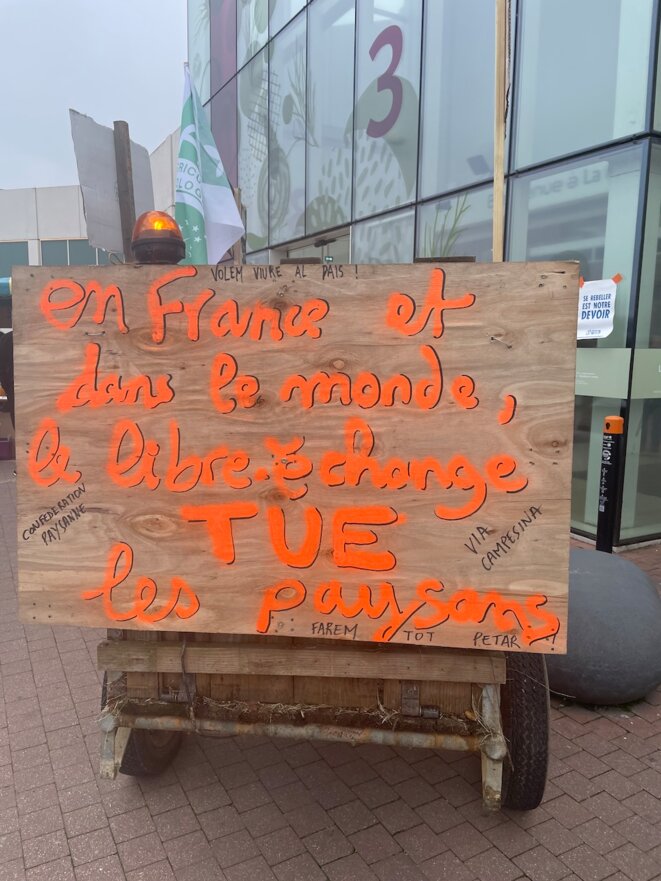 3
SE REBELLER
EST NOTRE
DEVOIR
VOLEM VIURE AL PAIS !
en France et
dans le monde,
le libre-échange
TUE
les paysans
CONFEDERATION
PAYSANNE
VIA
CAMPESINA
FAREM TOT PETAR !